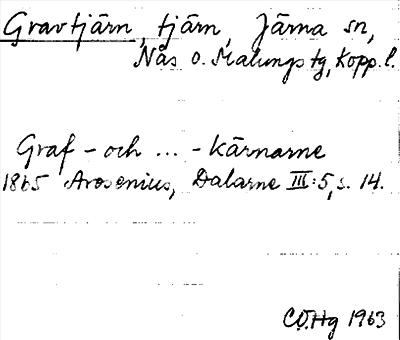 Gravtjärn, tjärn, Järna sn,
Nås o. Malungs tg, Kopp. l.
Graf - och ... - kärnarne
1865 Arosenius, Dalarne III:5, s. 14.
C.O.Hg 1963